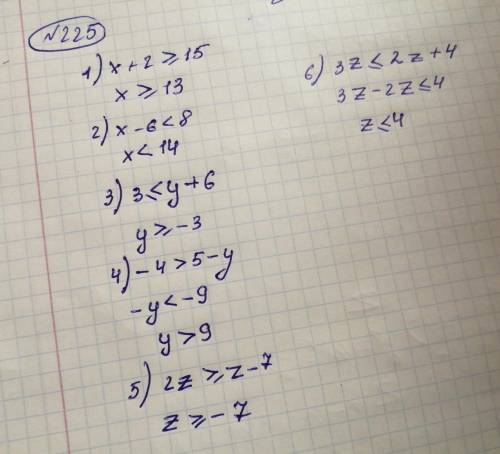 №225
1) x + 2 ≥ 15
x ≥ 13
2) x - 6 < 8
x < 14
3) 3 ≤ y + 6
y ≥ -3
4) -4 > 5 - y
-y < -9
y > 9
5) 2z ≥ z - 7
z ≥ -7
6) 3z ≤ 2z + 4
3z - 2z ≤ 4
z ≤ 4